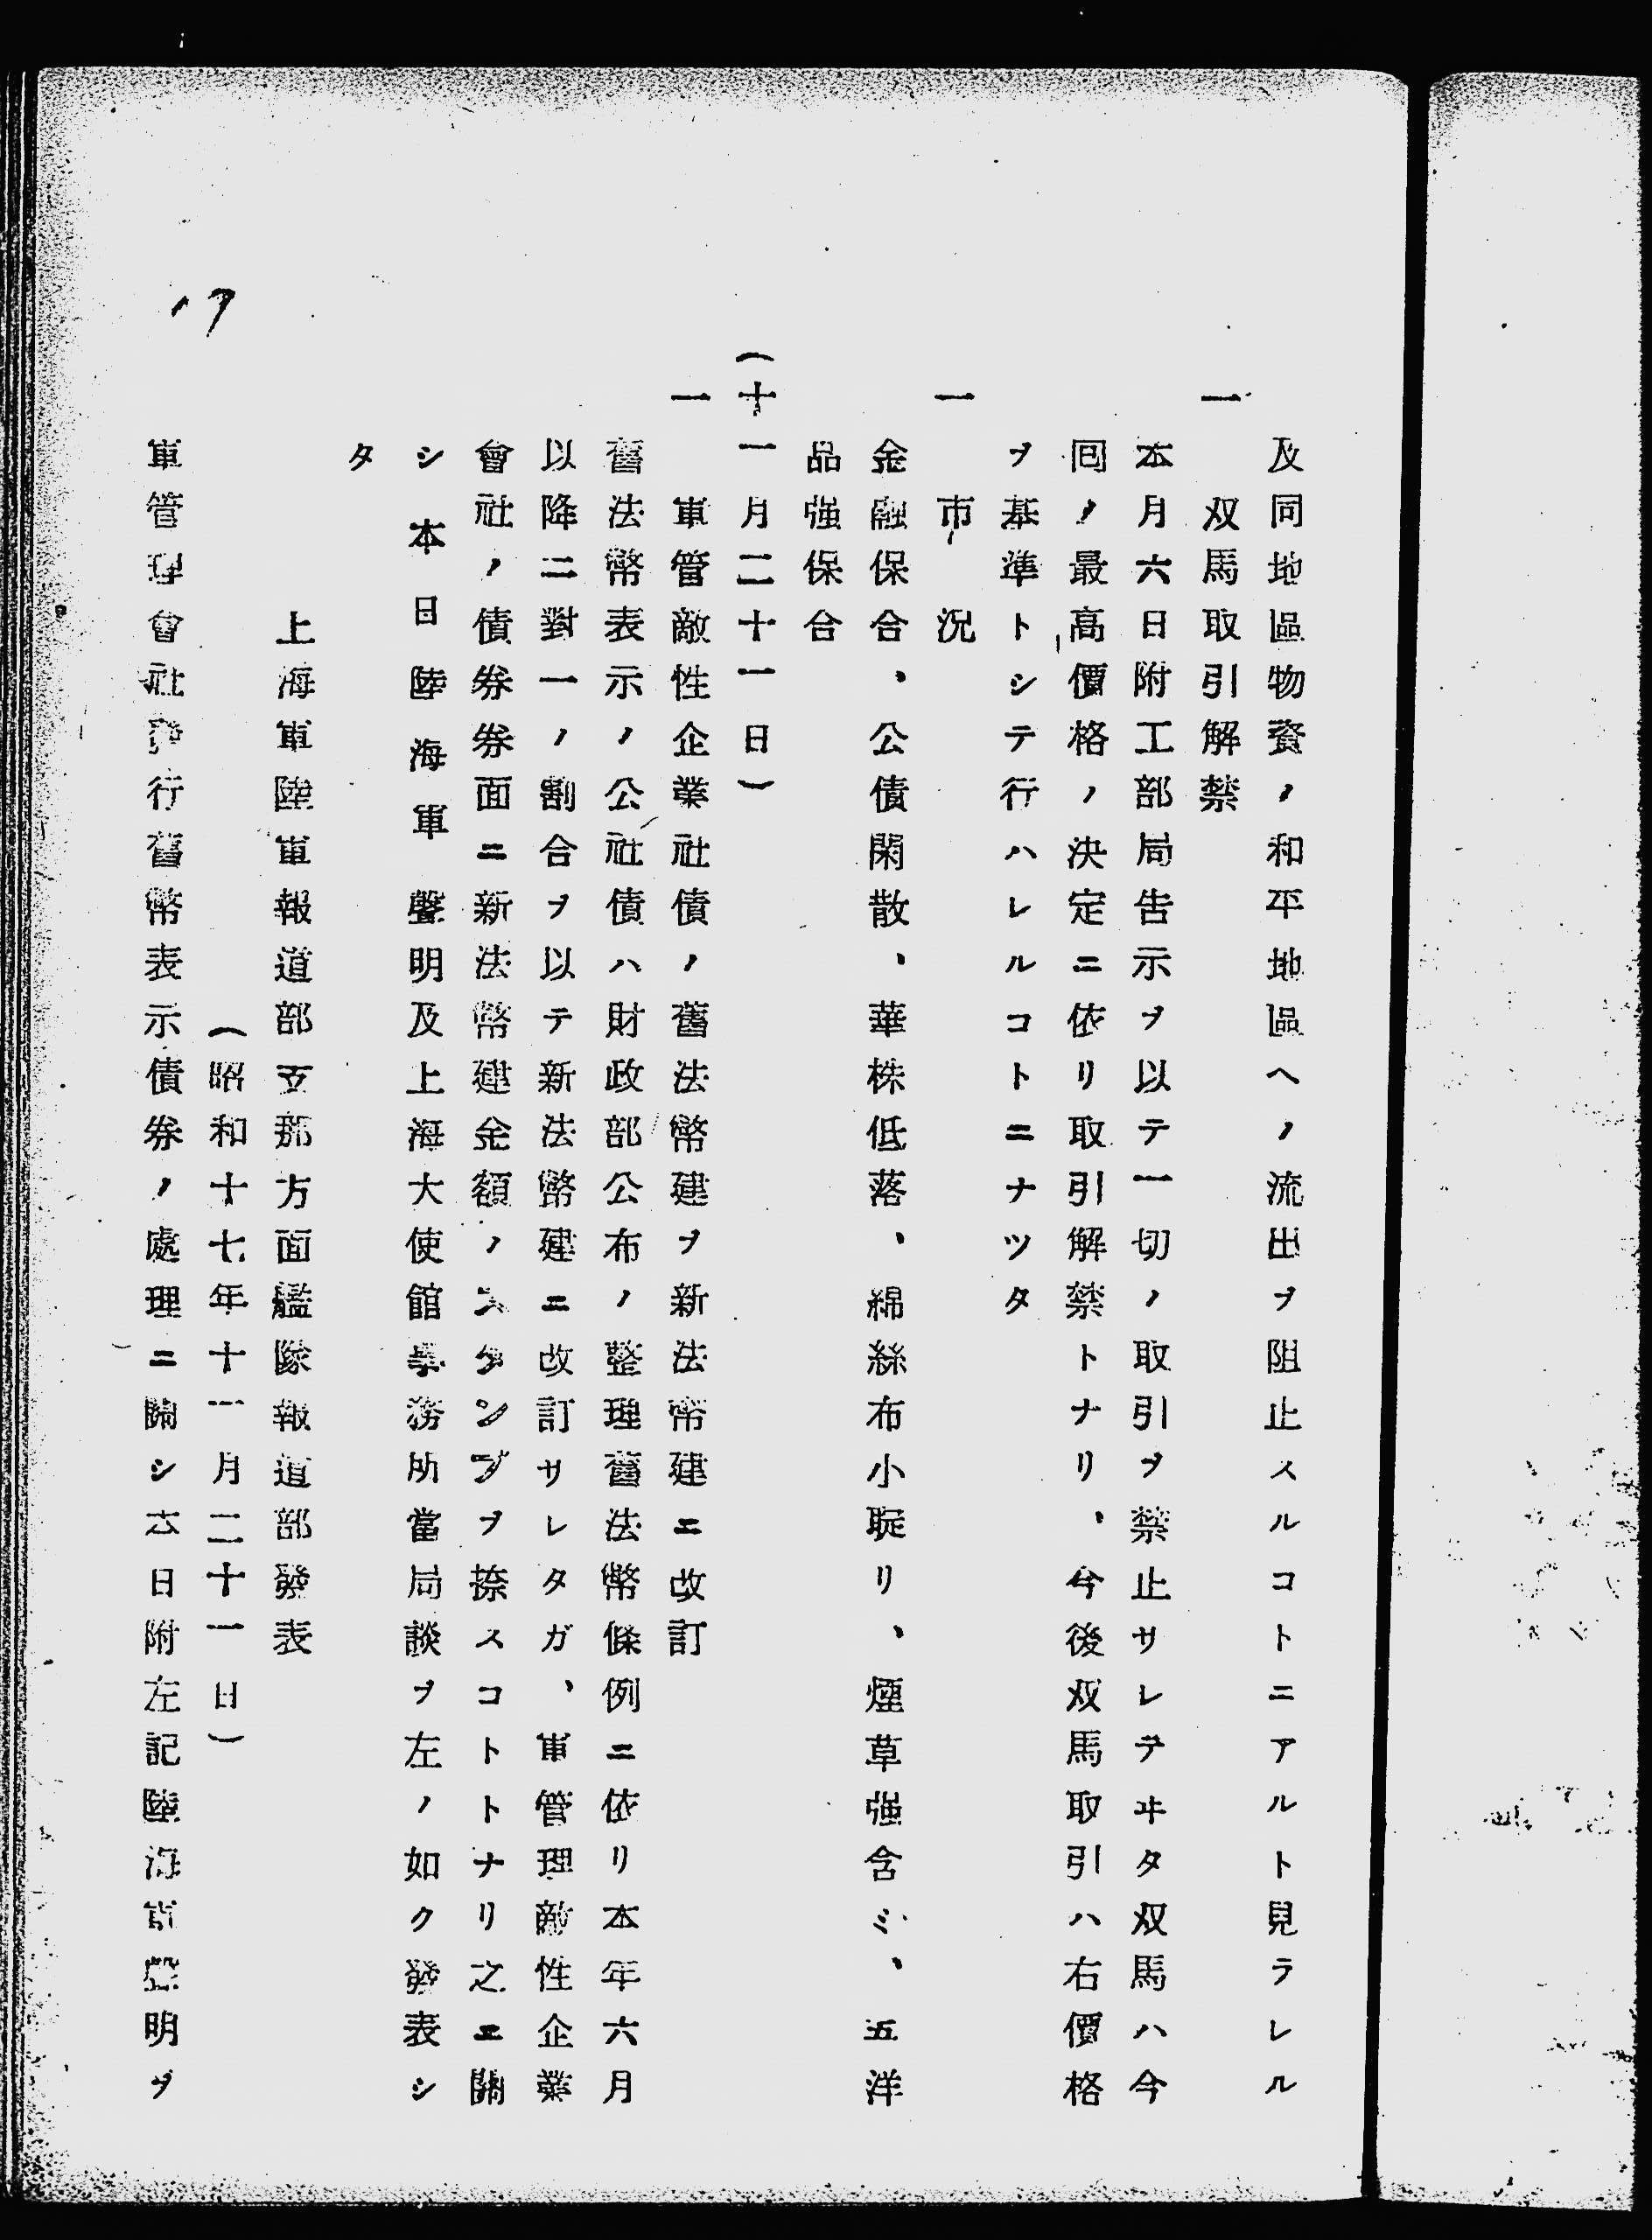 及同地區物資ノ和平地區ヘノ流出ヲ阻止スルコトニアルト見ラレル
一　双馬取引解禁
本月六日附工部局告示ヲ以テ一切ノ取引ヲ禁止サレテヰタ双馬ハ今
囘ノ最高價格ノ決定ニ依リ取引解禁トナリ、今後双馬取引ハ右價格
ヲ基準トシテ行ハレルコトニナツタ
一　市況
金融保合、公債閑散、華株低落、綿絲布小聢リ、煙草强含ミ、五洋
品强保合
（十一月二十一日）
一　軍管敵性企業社債ノ舊法幣建ヲ新法幣建ニ改訂
舊法幣表示ノ公社債ハ財政部公布ノ整理舊法幣條例ニ依リ本年六月
以降二對一ノ割合ヲ以テ新法幣建ニ改訂サレタガ、軍管理敵性企業
會社ノ債券券面ニ新法幣建金額ノスタンプヲ捺スコトトナリ之ニ關
シ本日陸海軍聲明及上海大使館事務所當局談ヲ左ノ如ク發表シ
タ
上海軍陸軍報道部支那方面艦隊報道部發表
（昭和十七年十一月二十一日）
軍管理會社發行舊幣表示債券ノ處理ニ關シ本日附左記陸海軍聲明ヲ
17